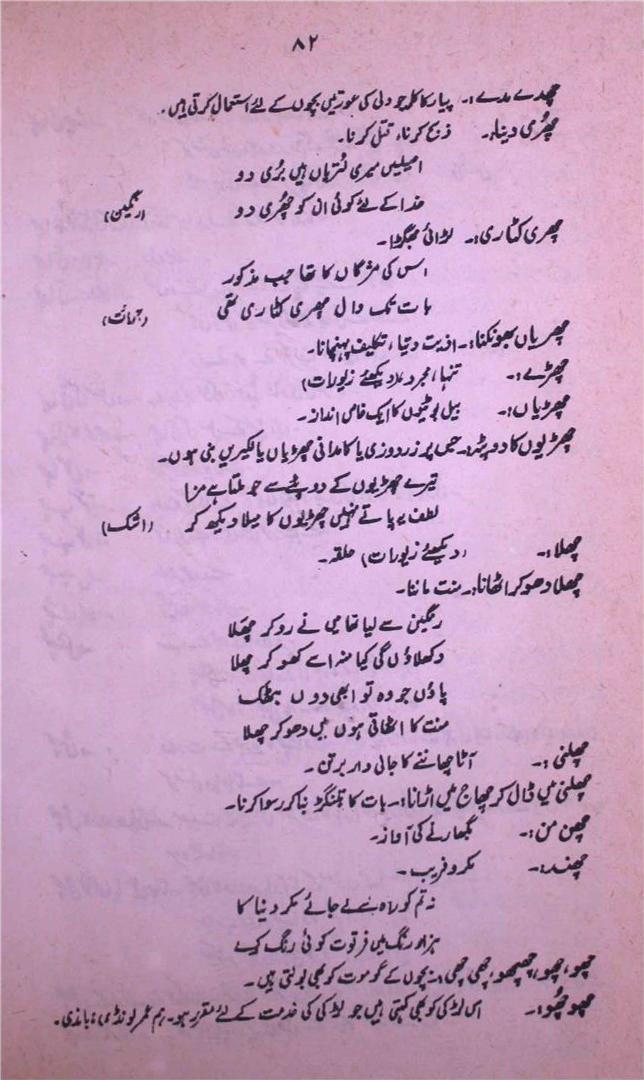 ۸۲
چھدے مدے:۔ پیار کا کلمہ جو دلی کی عورتیں بچوں کے لئے استعمال کرتی ہیں۔
چھُری دینا:۔ ذبح کرنا، قتل کرنا۔
امیلیں میری نُتریاں ہیں بُری دو
خدا کے لئے کوئی ان کو چھُری دو (رنگین)
چھری کٹاری:۔ لڑائی جھگڑا۔
اس کی مژگاں کا تھا جب مذکور
بات تک واں چھری کٹاری تھی (جرأت)
چھریاں بھونکنا:۔ اذیت دینا، تکلیف پہنچانا۔
چھڑے:۔ تنہا، مجرد (دیکھئے زیورات)
چھڑیاں:۔ بیل بوٹیوں کا ایک خاص انداز۔
چھڑیوں کا دوپٹہ:۔ جس پر زردوزی یا کامدانی چھڑیاں یا لکیریں بنی ہوں۔
تیرے چھڑیوں کے دوپٹے سے جو ملتا ہے مزا
لطف یہ پاتے نہیں چھڑیوں کا میلا دیکھ کر (اشک)
چھلا:۔ (دیکھئے زیورات) حلقہ۔
چھلا دھو کر اٹھانا:۔ منت ماننا۔
رنگین سے لیا تھا میں نے رو کر چھلا
دکھلاؤں گی کیا منہ اسے کھو کر چھلا
پاؤں جو وہ تو ابھی دوں بیٹھک
منت کا اٹھاتی ہوں میں دھو کر چھلا
چھلنی:۔ آٹا چھاننے کا جالی دار برتن۔
چھلنی میں ڈال کر چھاج میں اڑانا:۔ بات کا بتنگڑ بنا کر رسوا کرنا۔
چھن من:۔ بگھارنے کی آواز۔
چھند:۔ مکر و فریب۔
نہ تم کو راہ سے لے جائے مکر دنیا کا
ہزار رنگ میں فرتوت کوئی رنگ کیسے
چھو، چھو، چھیچھو، چھی چھی:۔ بچوں کے گو موت کو بھی بولتی ہیں۔
چھو چھُو:۔ اس لڑکی کو بھی کہتی ہیں جو لڑکی کی خدمت کے لئے مقرر ہو۔ ہم عمر لونڈی، باندی۔